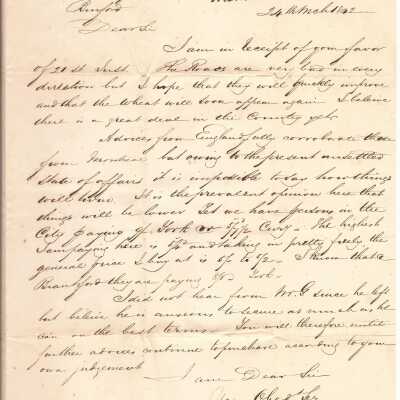 24th March 1842
Dear Sir
I am in receipt of your favor
of 21st Inst. The Roads are very bad in every
direction but I hope that they will quickly improve
and that the Wheat will soon appear again. I believe
there is a great deal in the Country yet.
Advices from England fully corroborate those
from but owing to the present unsettled
State of affairs it is impossible to say how things
will turn. It is the prevalent opinion here that
things will be lower. Yet we have persons in the
City paying York or Curcy. The highest
I am paying here is and taking in pretty freely the
general price I buy at is to I know that at
they are paying York.
I did not hear from Mr. G since he left
but believe he is anxious to secure as much as he
can on the best terms. You will therefore until
further advices continue to purchase according to your
own judgement
I am Dear Sir